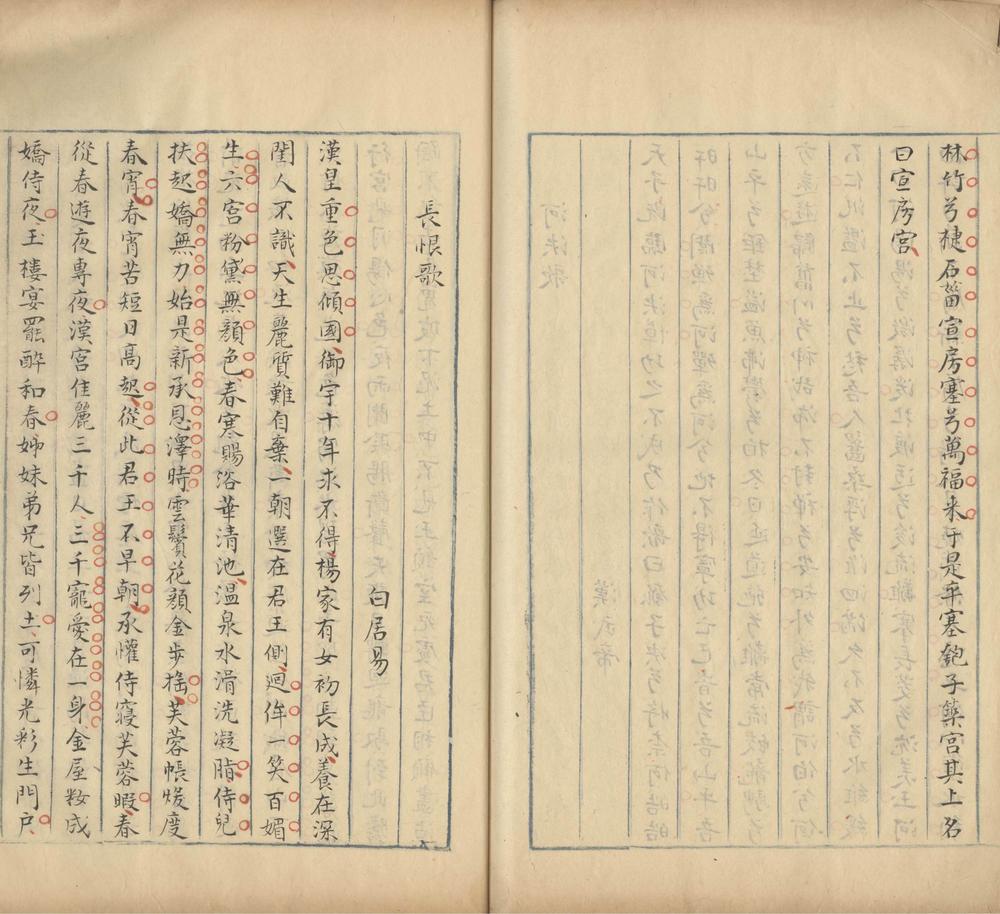 林竹兮楗石菑宣房塞兮萬福来于是卒塞鲍子築宮其上名
曰宣房宮
長恨歌
白居易
漢皇重色思傾國御宇十年求不得楊家有女初長成養在深
閨人不識天生麗質難自棄一朝選在君王側迴眸一笑百媚
生六宮粉黛無顔色春寒賜浴華清池溫泉水滑洗凝脂侍兒
扶起嬌無力始是新承恩澤時雲鬢花顔金步搖芙蓉帳煖度
春宵春宵苦短日高起從此君王不早朝承懽侍寢芙蓉暇春
從春遊夜專夜漢宮佳麗三千人三千寵愛在一身金屋粧成
嬌侍夜玉樓宴罷醉和春姊妹弟兄皆列土可憐光彩生門户